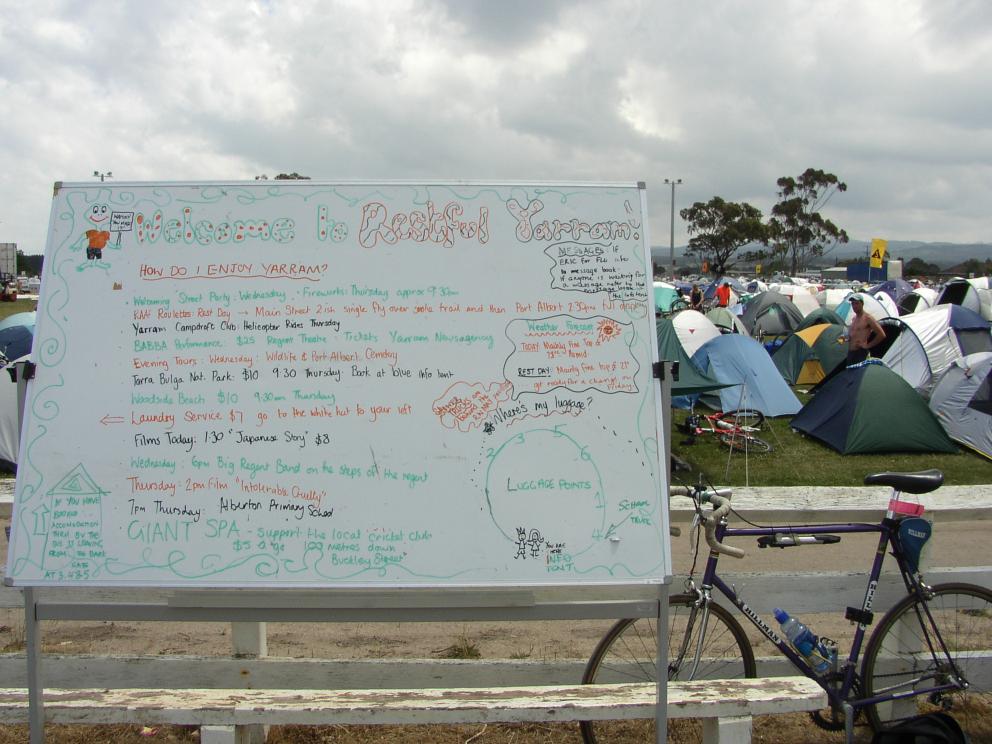 Welcome to Restful Yarram!
HOW DO I ENJOY YARRAM?
MESSAGES IF
ERIC for FLO like
to message book.
if anyone is waiting for
a message refer to the
message book in
the info tent
Welcoming Street Party: Wednesday. Fireworks: Thursday approx 9:30pm
RAAF Roulettes: Rest Day → Main Street 2ish single fly over smoke trail and then Port Albert 2:30pm full display
Yarram Campdraft Club: Helicopter Rides Thursday
BABBA Performance: $25 Regent Theatre: Tickets Yarram Newsagency
Evening Tours: Wednesday: Wildlife & Port Albert. Cemetry
Tarra Bulga Nat. Park: $10 9:30 Thursday: Book at blue info tent
Woodside Beach $10 9:30am Thursday
Laundry Service $7 go to the white hut to your left
Films Today: 1:30 "Japanese Story" $8
Wednesday: 6pm Big Regent Band on the steps of the regent
Thursday: 2pm Film "Intolerable Cruelty"
7pm Thursday: Alberton Primary School
GIANT SPA - support the local cricket club
$5 a go 100 metres down
Buckley Street
Weather Forecast
TODAY: Mainly Fine Top
REST DAY: Mainly fine top of 21°
get ready for a change on
Friday
Where's my luggage?
LUGGAGE POINTS
3
5
2
6
1
4
SCHOOL
TRUCK
YOU ARE
HERE
INFO
TENT
IF YOU HAVE
BOOKED
ACCOMODATION
THEN
BUS IS LEAVING
FROM THE
AT 3.45
HILLMAN
HILLMAN
A